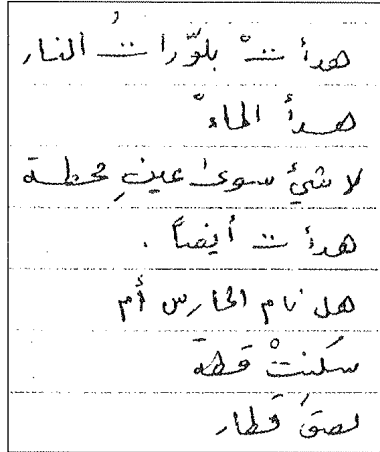 هدأتْ بلوّراتُ النار
هدأ الماءْ
لا شئ سوى عينِ محطة
هدأت أيضاً .
هل نام الحارس أم
سكنتْ قطة
لصقَ قطار